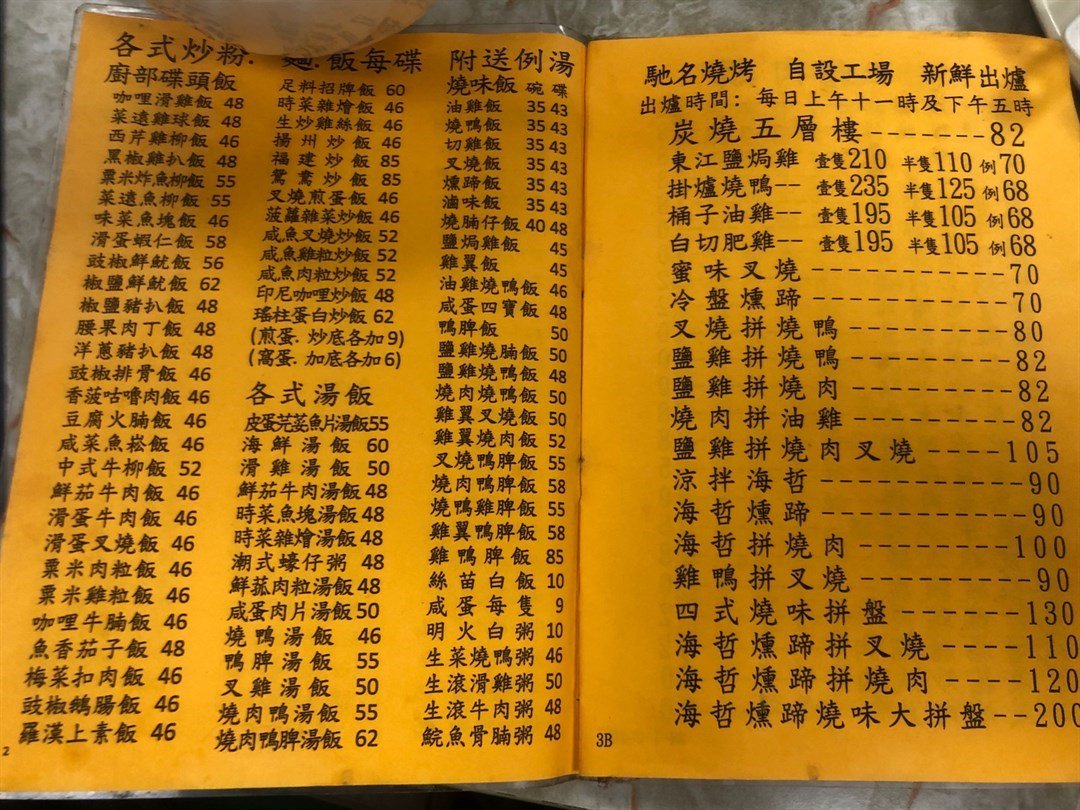 各式炒粉. 麵. 飯每碟 附送例湯
廚部碟頭飯
咖哩滑雞飯 48
菜遠雞球飯 48
西芹雞柳飯 46
黑椒雞扒飯 48
粟米炸魚柳飯 55
菜遠魚柳飯 55
味菜魚塊飯 46
滑蛋蝦仁飯 58
豉椒鮮魷飯 56
椒鹽鮮魷飯 62
椒鹽豬扒飯 48
腰果肉丁飯 48
洋蔥豬扒飯 48
豉椒排骨飯 46
香菠咕嚕肉飯 46
豆腐火腩飯 46
咸菜魚崧飯 46
中式牛柳飯 52
鮮茄牛肉飯 46
滑蛋牛肉飯 46
滑蛋叉燒飯 46
粟米肉粒飯 46
粟米雞粒飯 46
咖哩牛腩飯 46
魚香茄子飯 48
梅菜扣肉飯 46
豉椒鵝腸飯 46
羅漢上素飯 46
2
足料招牌飯 60
時菜雜燴飯 46
生炒雞絲飯 46
揚州炒飯 46
福建炒飯 85
鴛鴦炒飯 85
叉燒煎蛋飯 46
菠蘿雜菜炒飯 46
咸魚叉燒炒飯 52
咸魚雞粒炒飯 52
咸魚肉粒炒飯 52
印尼咖哩炒飯 48
瑤柱蛋白炒飯 62
(煎蛋. 炒底各加9)
(窩蛋. 加底各加6)
各式湯飯
皮蛋芫荽魚片湯飯55
海鮮湯飯 60
滑雞湯飯 50
鮮茄牛肉湯飯 48
時菜魚塊湯飯 48
時菜雜燴湯飯 48
潮式蠔仔粥 48
鮮菰肉粒湯飯 48
咸蛋肉片湯飯 50
燒鴨湯飯 46
鴨脾湯飯 55
叉雞湯飯 50
燒肉鴨湯飯 55
燒肉鴨脾湯飯 62
燒味飯 碗 碟
油雞飯 35 43
燒鴨飯 35 43
切雞飯 35 43
叉燒飯 35 43
燻蹄飯 35 43
滷味飯 35 43
燒腩仔飯 40 48
鹽焗雞飯 45
雞翼飯 45
油雞燒鴨飯 46
咸蛋四寶飯 48
鴨脾飯 50
鹽雞燒腩飯 50
鹽雞燒鴨飯 48
燒肉燒鴨飯 50
雞翼叉燒飯 50
雞翼燒肉飯 52
叉燒鴨脾飯 55
燒肉鴨脾飯 58
燒鴨雞脾飯 55
雞翼鴨脾飯 58
雞鴨脾飯 85
絲苗白飯 10
咸蛋每隻 9
明火白粥 10
生菜燒鴨粥 46
生滾滑雞粥 50
生滾牛肉粥 48
鯇魚骨腩粥 48
馳名燒烤 自設工場 新鮮出爐
出爐時間：每日上午十一時及下午五時
炭燒五層樓-------82
東江鹽焗雞 壹隻210 半隻110 例70
掛爐燒鴨-- 壹隻235 半隻125 例68
桶子油雞-- 壹隻195 半隻105 例68
白切肥雞-- 壹隻195 半隻105 例68
蜜味叉燒-----------70
冷盤燻蹄-----------70
叉燒拼燒鴨---------80
鹽雞拼燒鴨---------82
鹽雞拼燒肉---------82
燒肉拼油雞---------82
鹽雞拼燒肉叉燒----105
涼拌海哲-----------90
海哲燻蹄-----------90
海哲拼燒肉--------100
雞鴨拼叉燒---------90
四式燒味拼盤------130
海哲燻蹄拼叉燒----110
海哲燻蹄拼燒肉----120
海哲燻蹄燒味大拼盤--200
3B